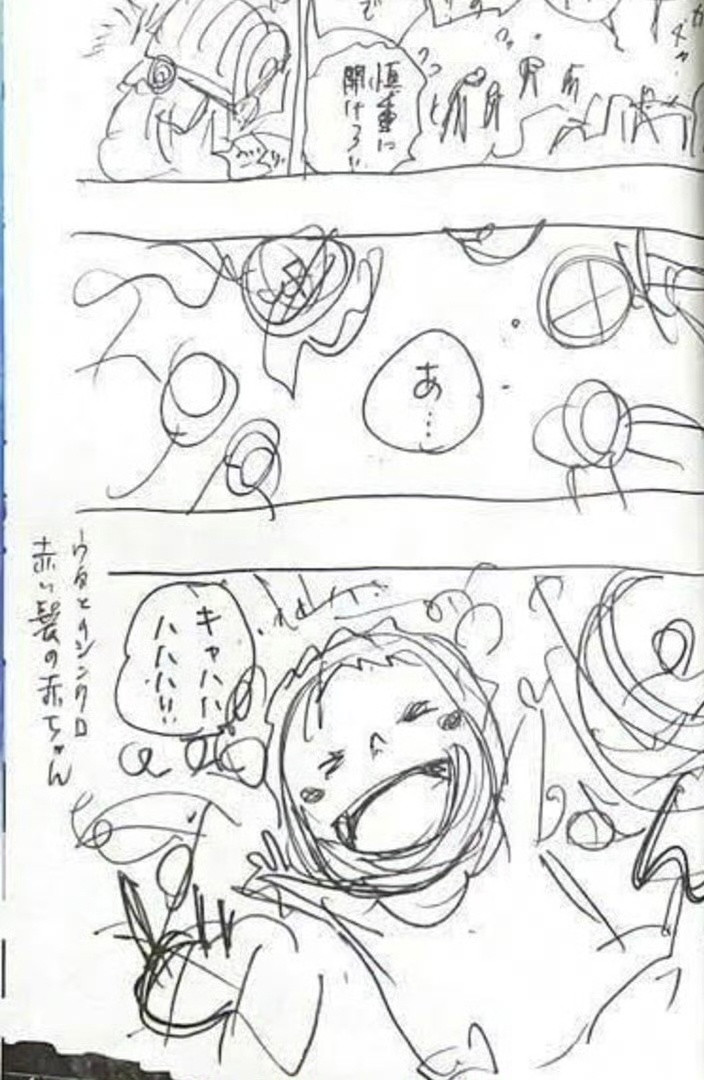 慎重に
開けろ!!
あ…
キャハハ
ハハハ!!
ウタとのシンクロ
赤い髪の赤ちゃん